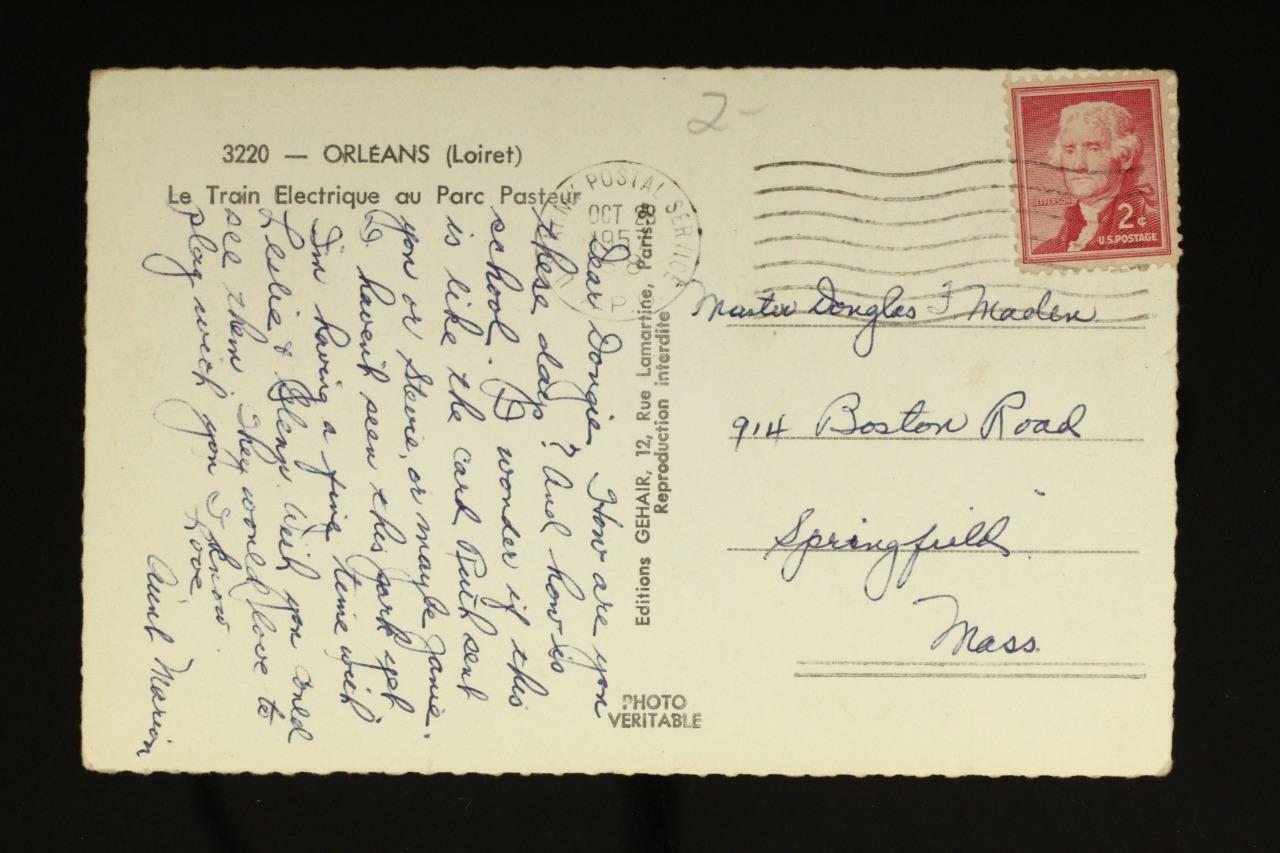 2-
3220 — ORLÉANS (Loiret)
Le Train Electrique au Parc Pasteur
POSTAL SERVICE
OCT 28
195
P
JEFFERSON
2¢
U.S. POSTAGE
Dear Dougie, How are you
these days? And how is
school. I wonder if this
is like the card Ruth sent
you or Stevie, or maybe Janie.
I haven't seen this park yet
I'm having a fine time with
Leslie & Glenn. Wish you could
see them. They would love to
play with you I know.
Love
Aunt Marion
Editions GEHAIR, 12, Rue Lamartine, Paris-9
Reproduction interdite
PHOTO
VERITABLE
Master Douglas F Maden
914 Boston Road
Springfield
Mass.